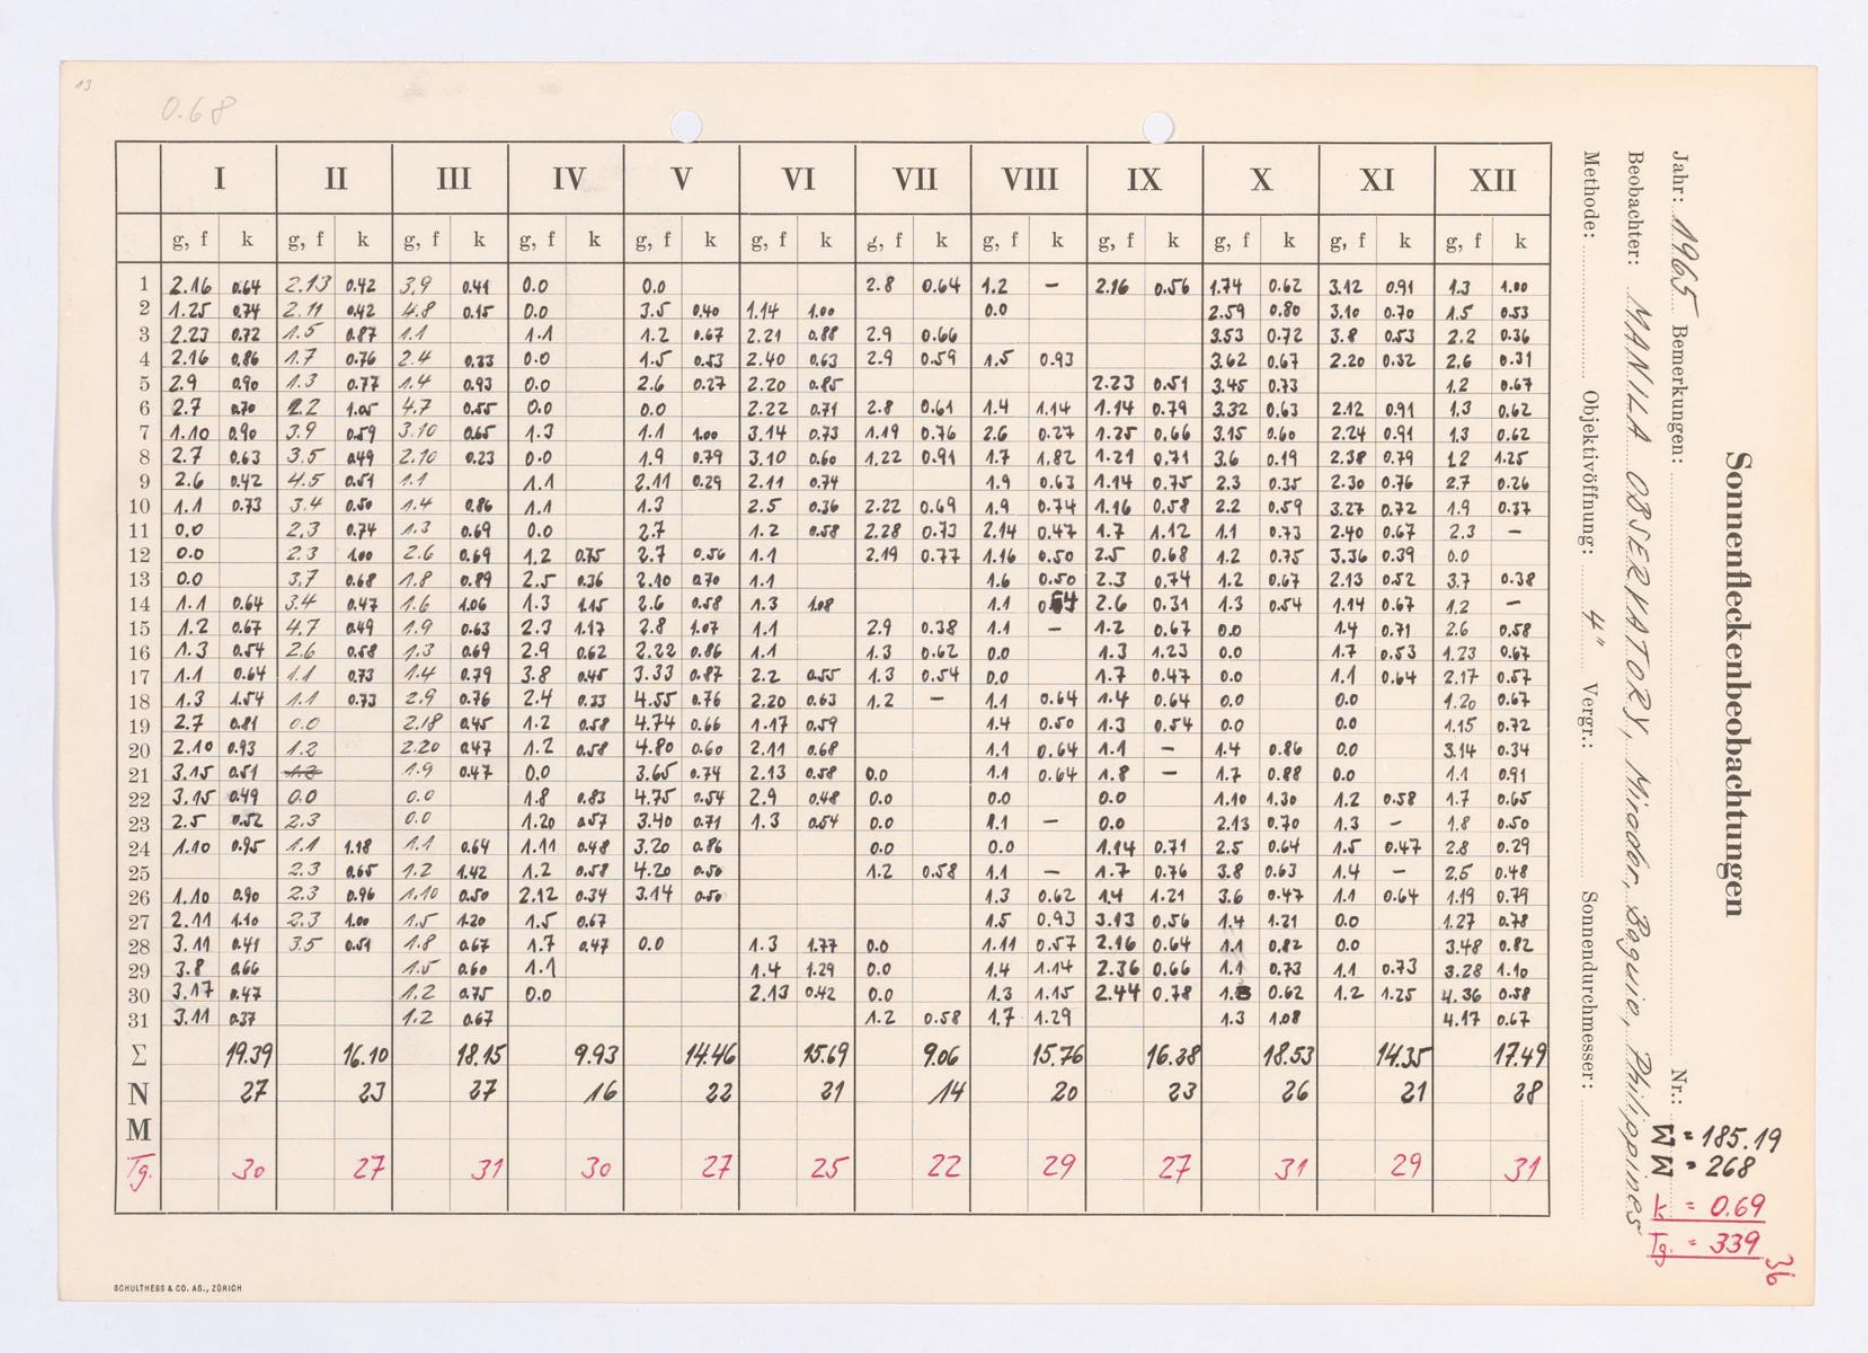 13
0.68
I II III IV V VI VII VIII IX X XI XII
g, f k g, f k g, f k g, f k g, f k g, f k g, f k g, f k g, f k g, f k g, f k g, f k
1 2.16 0.64 2.13 0.42 3.9 0.41 0.0 0.0 2.8 0.64 1.2 – 2.16 0.56 1.74 0.62 3.12 0.91 1.3 1.00
2 1.25 0.74 2.11 0.42 4.8 0.15 0.0 3.5 0.40 1.14 1.00 0.0 2.59 0.80 3.10 0.70 1.5 0.53
3 2.23 0.72 1.5 0.87 1.1 1.1 1.2 0.67 2.21 0.88 2.9 0.66 3.53 0.72 3.8 0.53 2.2 0.36
4 2.16 0.86 1.7 0.76 2.4 0.33 0.0 1.5 0.53 2.40 0.63 2.9 0.59 1.5 0.93 3.62 0.67 2.20 0.32 2.6 0.31
5 2.9 0.90 1.3 0.77 1.4 0.93 0.0 2.6 0.27 2.20 0.85 2.23 0.51 3.45 0.73 1.2 0.67
6 2.7 0.70 2.2 1.05 4.7 0.55 0.0 0.0 2.22 0.71 2.8 0.61 1.4 1.14 1.14 0.79 3.32 0.63 2.12 0.91 1.3 0.62
7 1.10 0.90 3.9 0.59 3.10 0.65 1.3 1.1 1.00 3.14 0.73 1.19 0.76 2.6 0.27 1.25 0.66 3.15 0.60 2.24 0.91 1.3 0.62
8 2.7 0.63 3.5 0.49 2.10 0.23 0.0 1.9 0.79 3.10 0.60 1.22 0.91 1.7 1.82 1.21 0.71 3.6 0.19 2.38 0.79 1.2 1.25
9 2.6 0.42 4.5 0.51 1.1 1.1 2.11 0.29 2.11 0.74 1.9 0.63 1.14 0.75 2.3 0.35 2.30 0.76 2.7 0.26
10 1.1 0.73 3.4 0.50 1.4 0.86 1.1 1.3 2.5 0.36 2.22 0.69 1.9 0.74 1.16 0.58 2.2 0.59 3.27 0.72 1.9 0.37
11 0.0 2.3 0.74 1.3 0.69 0.0 2.7 1.2 0.58 2.28 0.73 2.14 0.47 1.7 1.12 1.1 0.73 2.40 0.67 2.3 –
12 0.0 2.3 1.00 2.6 0.69 1.2 0.75 2.7 0.56 1.1 2.19 0.77 1.16 0.50 2.5 0.68 1.2 0.75 3.36 0.39 0.0
13 0.0 3.7 0.68 1.8 0.89 2.5 0.36 2.10 0.70 1.1 1.6 0.50 2.3 0.74 1.2 0.67 2.13 0.52 3.7 0.38
14 1.1 0.64 3.4 0.47 1.6 1.06 1.3 1.15 2.6 0.58 1.3 1.08 1.1 0.64 2.6 0.31 1.3 0.54 1.14 0.67 1.2 –
15 1.2 0.67 4.7 0.49 1.9 0.63 2.3 1.17 2.8 1.07 1.1 2.9 0.38 1.1 – 1.2 0.67 0.0 1.4 0.71 2.6 0.58
16 1.3 0.54 2.6 0.58 1.3 0.69 2.9 0.62 2.22 0.86 1.1 1.3 0.62 0.0 1.3 1.23 0.0 1.7 0.53 1.23 0.67
17 1.1 0.64 1.1 0.73 1.4 0.79 3.8 0.45 3.33 0.87 2.2 0.55 1.3 0.54 0.0 1.7 0.47 0.0 1.1 0.64 2.17 0.57
18 1.3 1.54 1.1 0.73 2.9 0.76 2.4 0.33 4.55 0.76 2.20 0.63 1.2 – 1.1 0.64 1.4 0.64 0.0 0.0 1.20 0.67
19 2.7 0.81 0.0 2.18 0.45 1.2 0.58 4.74 0.66 1.17 0.59 1.4 0.50 1.3 0.54 0.0 0.0 1.15 0.72
20 2.10 0.93 1.2 2.20 0.47 1.2 0.58 4.80 0.60 2.11 0.68 1.1 0.64 1.1 – 1.4 0.86 0.0 3.14 0.34
21 3.15 0.51 1.2 1.9 0.47 0.0 3.65 0.74 2.13 0.58 0.0 1.1 0.64 1.8 – 1.7 0.88 0.0 1.1 0.91
22 3.15 0.49 0.0 0.0 1.8 0.83 4.75 0.54 2.9 0.48 0.0 0.0 0.0 1.10 1.30 1.2 0.58 1.7 0.65
23 2.5 0.52 2.3 0.0 1.20 0.57 3.40 0.71 1.3 0.54 0.0 1.1 – 0.0 2.13 0.70 1.3 – 1.8 0.50
24 1.10 0.95 1.1 1.18 1.1 0.64 1.11 0.48 3.20 0.86 0.0 0.0 1.14 0.71 2.5 0.64 1.5 0.47 2.8 0.29
25 2.3 0.65 1.2 1.42 1.2 0.58 4.20 0.50 1.2 0.58 1.1 – 1.7 0.76 3.8 0.63 1.4 – 2.5 0.48
26 1.10 0.90 2.3 0.96 1.10 0.50 2.12 0.34 3.14 0.50 1.3 0.62 1.4 1.21 3.6 0.47 1.1 0.64 1.19 0.79
27 2.11 1.10 2.3 1.00 1.5 1.20 1.5 0.67 1.5 0.93 3.13 0.56 1.4 1.21 0.0 1.27 0.78
28 3.11 0.41 3.5 0.51 1.8 0.67 1.7 0.47 0.0 1.3 1.77 0.0 1.11 0.57 2.16 0.64 1.1 0.82 0.0 3.48 0.82
29 3.8 0.66 1.5 0.60 1.1 1.4 1.29 0.0 1.4 1.14 2.36 0.66 1.1 0.73 1.1 0.73 3.28 1.10
30 3.17 0.47 1.2 0.75 0.0 2.13 0.42 0.0 1.3 1.15 2.44 0.78 1.3 0.62 1.2 1.25 4.36 0.58
31 3.11 0.37 1.2 0.67 1.2 0.58 1.7 1.29 1.3 1.08 4.17 0.67
Σ 19.39 16.10 18.15 9.93 14.46 15.69 9.06 15.76 16.28 18.53 14.35 17.49
N 27 23 27 16 22 21 14 20 23 26 21 28
M
Tg. 30 27 31 30 27 25 22 29 27 31 29 31
Sonnenfleckenbeobachtungen
Jahr: 1965 Bemerkungen: Nr.:
Beobachter: MANILA OBSERVATORY, Mirador, Baguio, Philippines
Methode: Objektivöffnung: 4" Vergr.: Sonnendurchmesser:
Σ = 185.19
Σ = 268
k = 0.69
Tg. = 339
36
SCHULTHESS & CO. AG., ZÜRICH